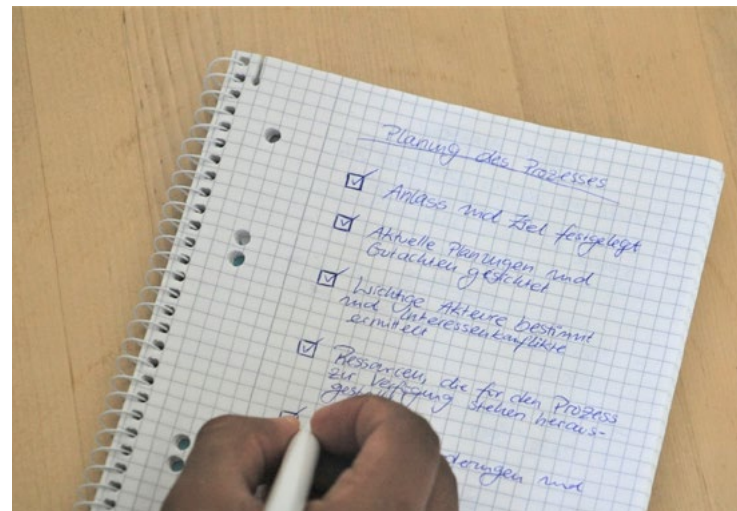 Planung des Prozesses
Anlass und Ziel festgelegt
Aktuelle Planungen und
Gutachten gesichtet
Wichtige Akteure bestimmt
und Interessenkonflikte
ermittelt
Ressourcen, die für den Prozess
zur Verfügung stehen heraus-
und